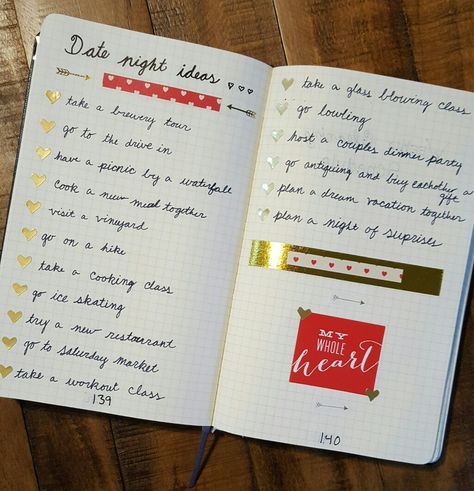 Date night ideas
take a brewery tour
go to the drive in
have a picnic by a waterfall
cook a new meal together
visit a vineyard
go on a hike
take a cooking class
go ice skating
try a new restaurant
go to saturday market
take a workout class
139
take a glass blowing class
go bowling
host a couples dinner party
go antiquing and buy eachother a
gift
plan a dream vacation together
plan a night of suprises
MY
WHOLE
heart
140